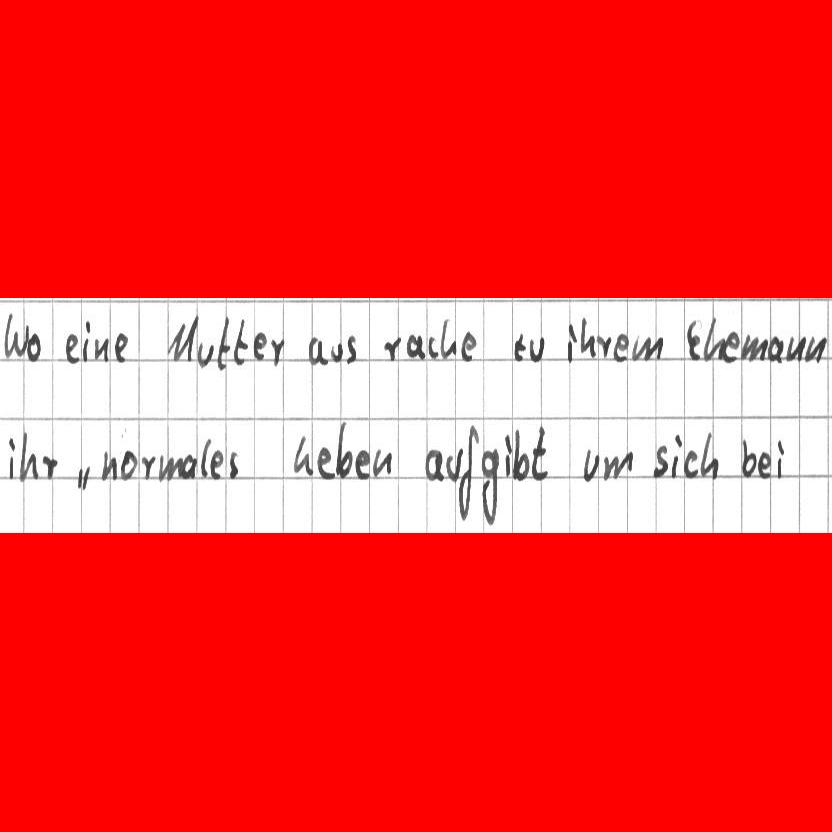 Wo eine Mutter aus rache zu ihrem Ehemann
ihr „normales leben aufgibt um sich bei